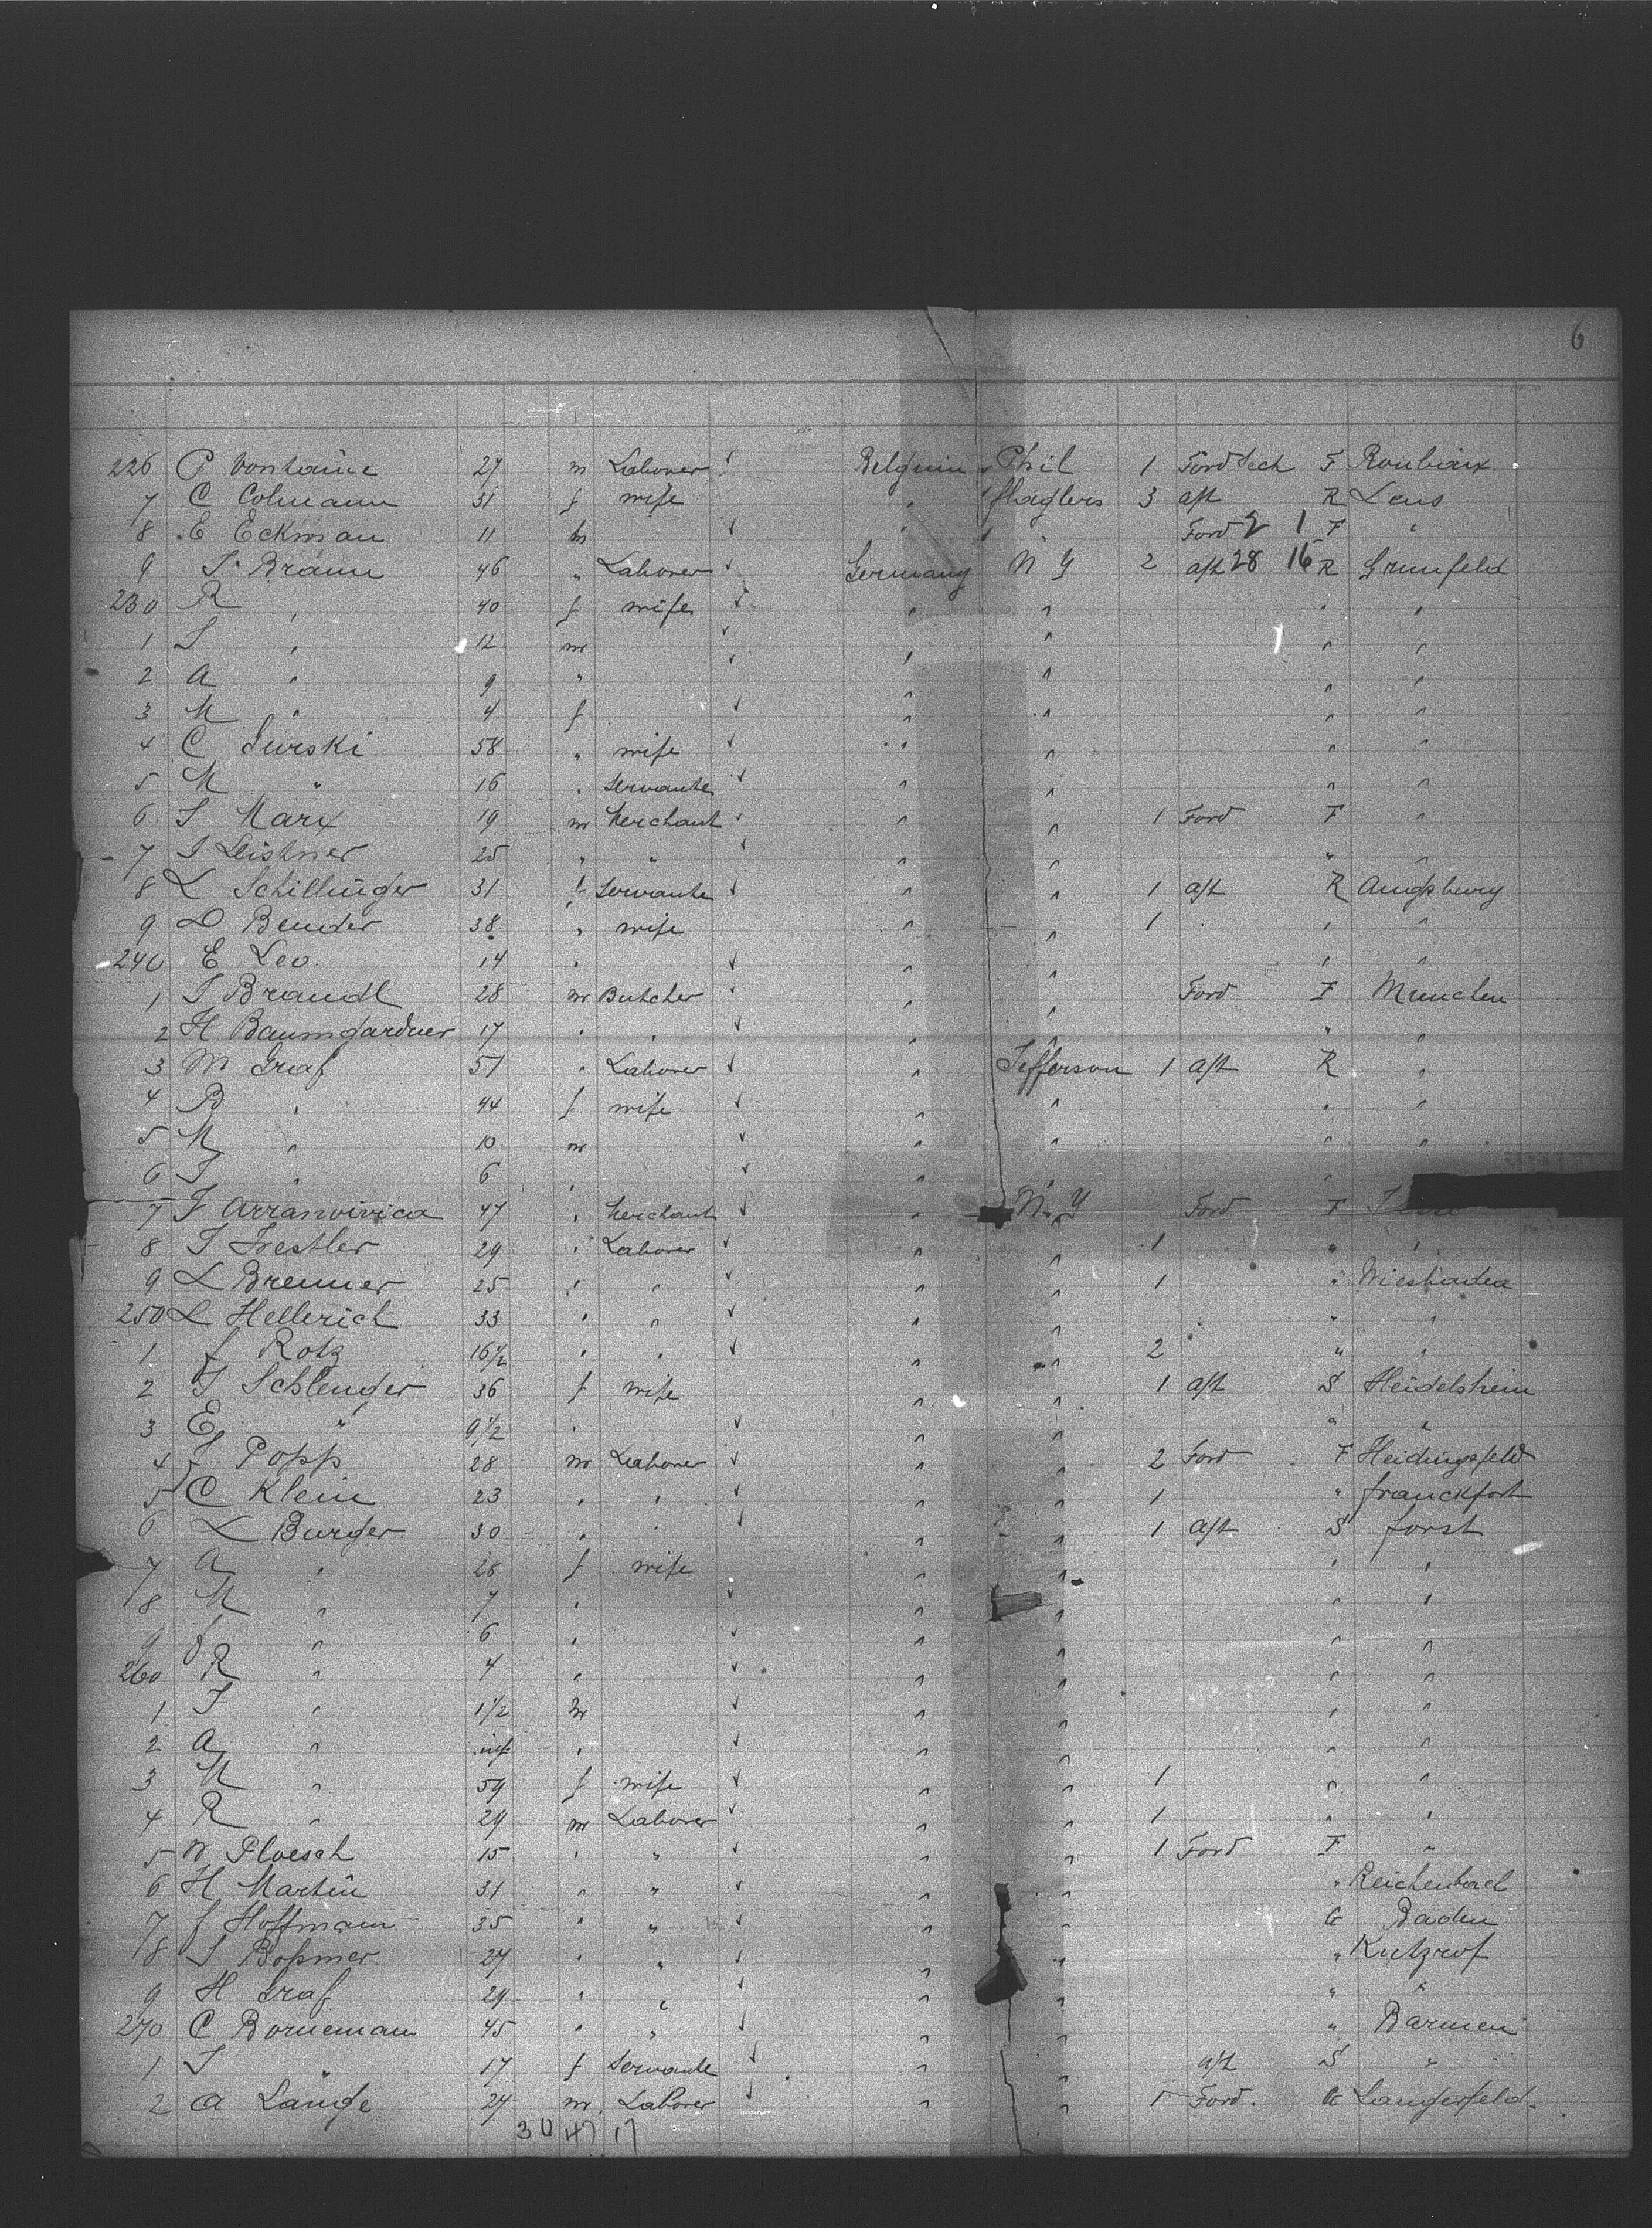 6
226 P Vontaine 27 m Laborer Belguim Phil 1 Ford Sech F Roubaix
7 C Colmann 31 f wife " flaglers 3 aft R Lens
8 E Eckman 11 m " " Ford 2 1 F "
9 J. Braun 46 " Laborer Germany N Y 2 aft 28 16 R Grunfeld
230 R " 40 f wife " " " "
1 S " 12 m " " " "
2 A " 9 " " " " "
3 M " 4 f " " " "
4 C Surski 58 " wife " " " "
5 M " 16 " Servante " " " "
6 S Marx 19 m Merchant " " 1 Ford F "
7 S Leistner 25 " " " " " "
8 L Schillinger 31 f Servante " " 1 aft R Augsburg
9 D Bender 38 " wife " " 1 " "
240 E Leo. 14 " " " " "
1 J Brandl 28 m Butcher " " Ford F Munchen
2 H Baumgardner 17 " " " " " "
3 M Graf 51 " Laborer " Jefferson 1 aft R "
4 B " 44 f wife " " " "
5 M " 10 m " " " "
6 J " 6 " " " "
7 F Arranvivica 47 " Merchant " N. Y Ford F
8 J Trestler 29 " Laborer " " 1 " "
9 L Brenner 25 " " " " 1 " Wiesbaden
250 L Hellerich 33 " " " " " "
1 f Rotz 16 1/2 " " " " 2 " "
2 J Schlenger 36 f wife " " 1 aft S Heidelsheim
3 E " 9 1/2 " " " " "
4 J Popp 28 m Laborer " " 2 Ford F Heidingsfeld
5 C Klein 23 " " " " 1 " franckfort
6 L Burger 30 " " " " 1 aft S forst
7 A " 28 f wife " " " "
8 M " 7 " " " " "
9 f " 6 " " " " "
260 R " 4 " " " " "
1 J " 1 1/2 m " " " "
2 A " inf " " " " "
3 M " 59 f wife " " 1 " "
4 R " 29 m Laborer " " 1 " "
5 W Ploesch 15 " " " " 1 Ford F "
6 H Martin 31 " " " " " Reichenbach
7 f Hoffmann 35 " " " " G Baden
8 J Boßmer 27 " " " " " Kutzrof
9 H Graf 29 " " " " " "
270 C Borneman 45 " " " " " Barmen
1 J " 17 f Servante " " aft S "
2 A Lange 27 m Laborer " " 1 Ford. G Langerfeld.
30 47 17